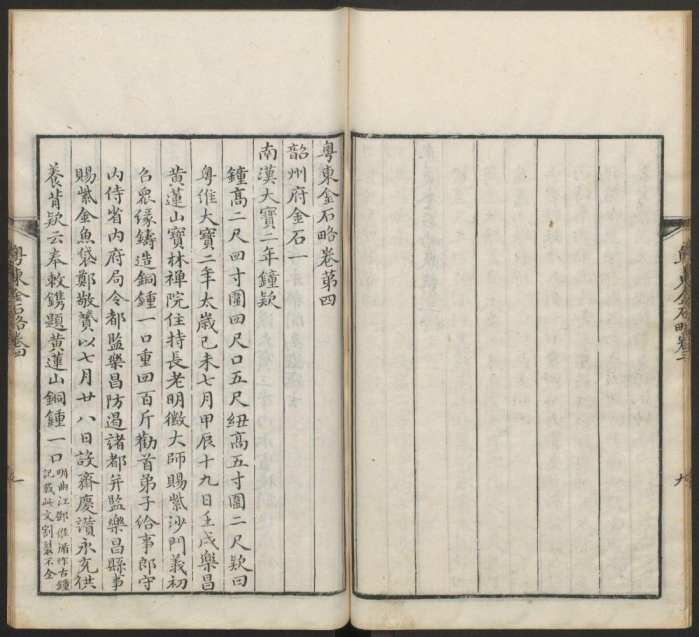 粤東金石略卷第四
韶州府金石一
南漢大寶二年鐘款
鐘高二尺四寸圍四尺口五尺紐高五寸圍二尺款曰
粤維大寶二年太歲己未七月甲辰十九日壬戌樂昌
黄蓮山寶林禪院住持長老明徽大師賜紫沙門義初
召衆緣鑄造銅鐘一口重四百斤勸首弟子給事郎守
内侍省内府局令都監樂昌防遏諸都并監樂昌縣事
賜紫金魚袋鄭敬贇以七月廿八日設齋慶讃永充供
養背款云奉敕鐫題黄蓮山銅鐘一口
明曲江鄧
作古鐘
記載此文割裂不全
粤東金石略卷四
九